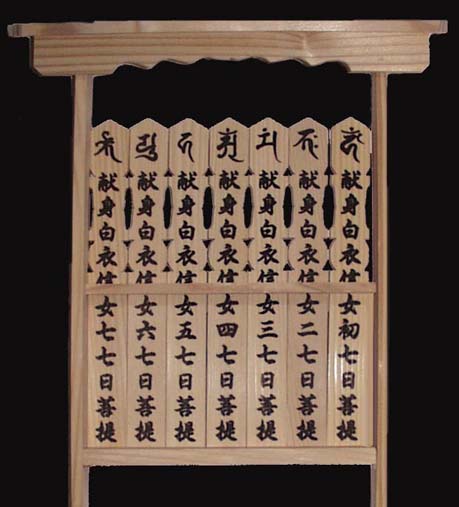 献身白衣信女初七日菩提
献身白衣信女二七日菩提
献身白衣信女三七日菩提
献身白衣信女四七日菩提
献身白衣信女五七日菩提
献身白衣信女六七日菩提
献身白衣信女七七日菩提